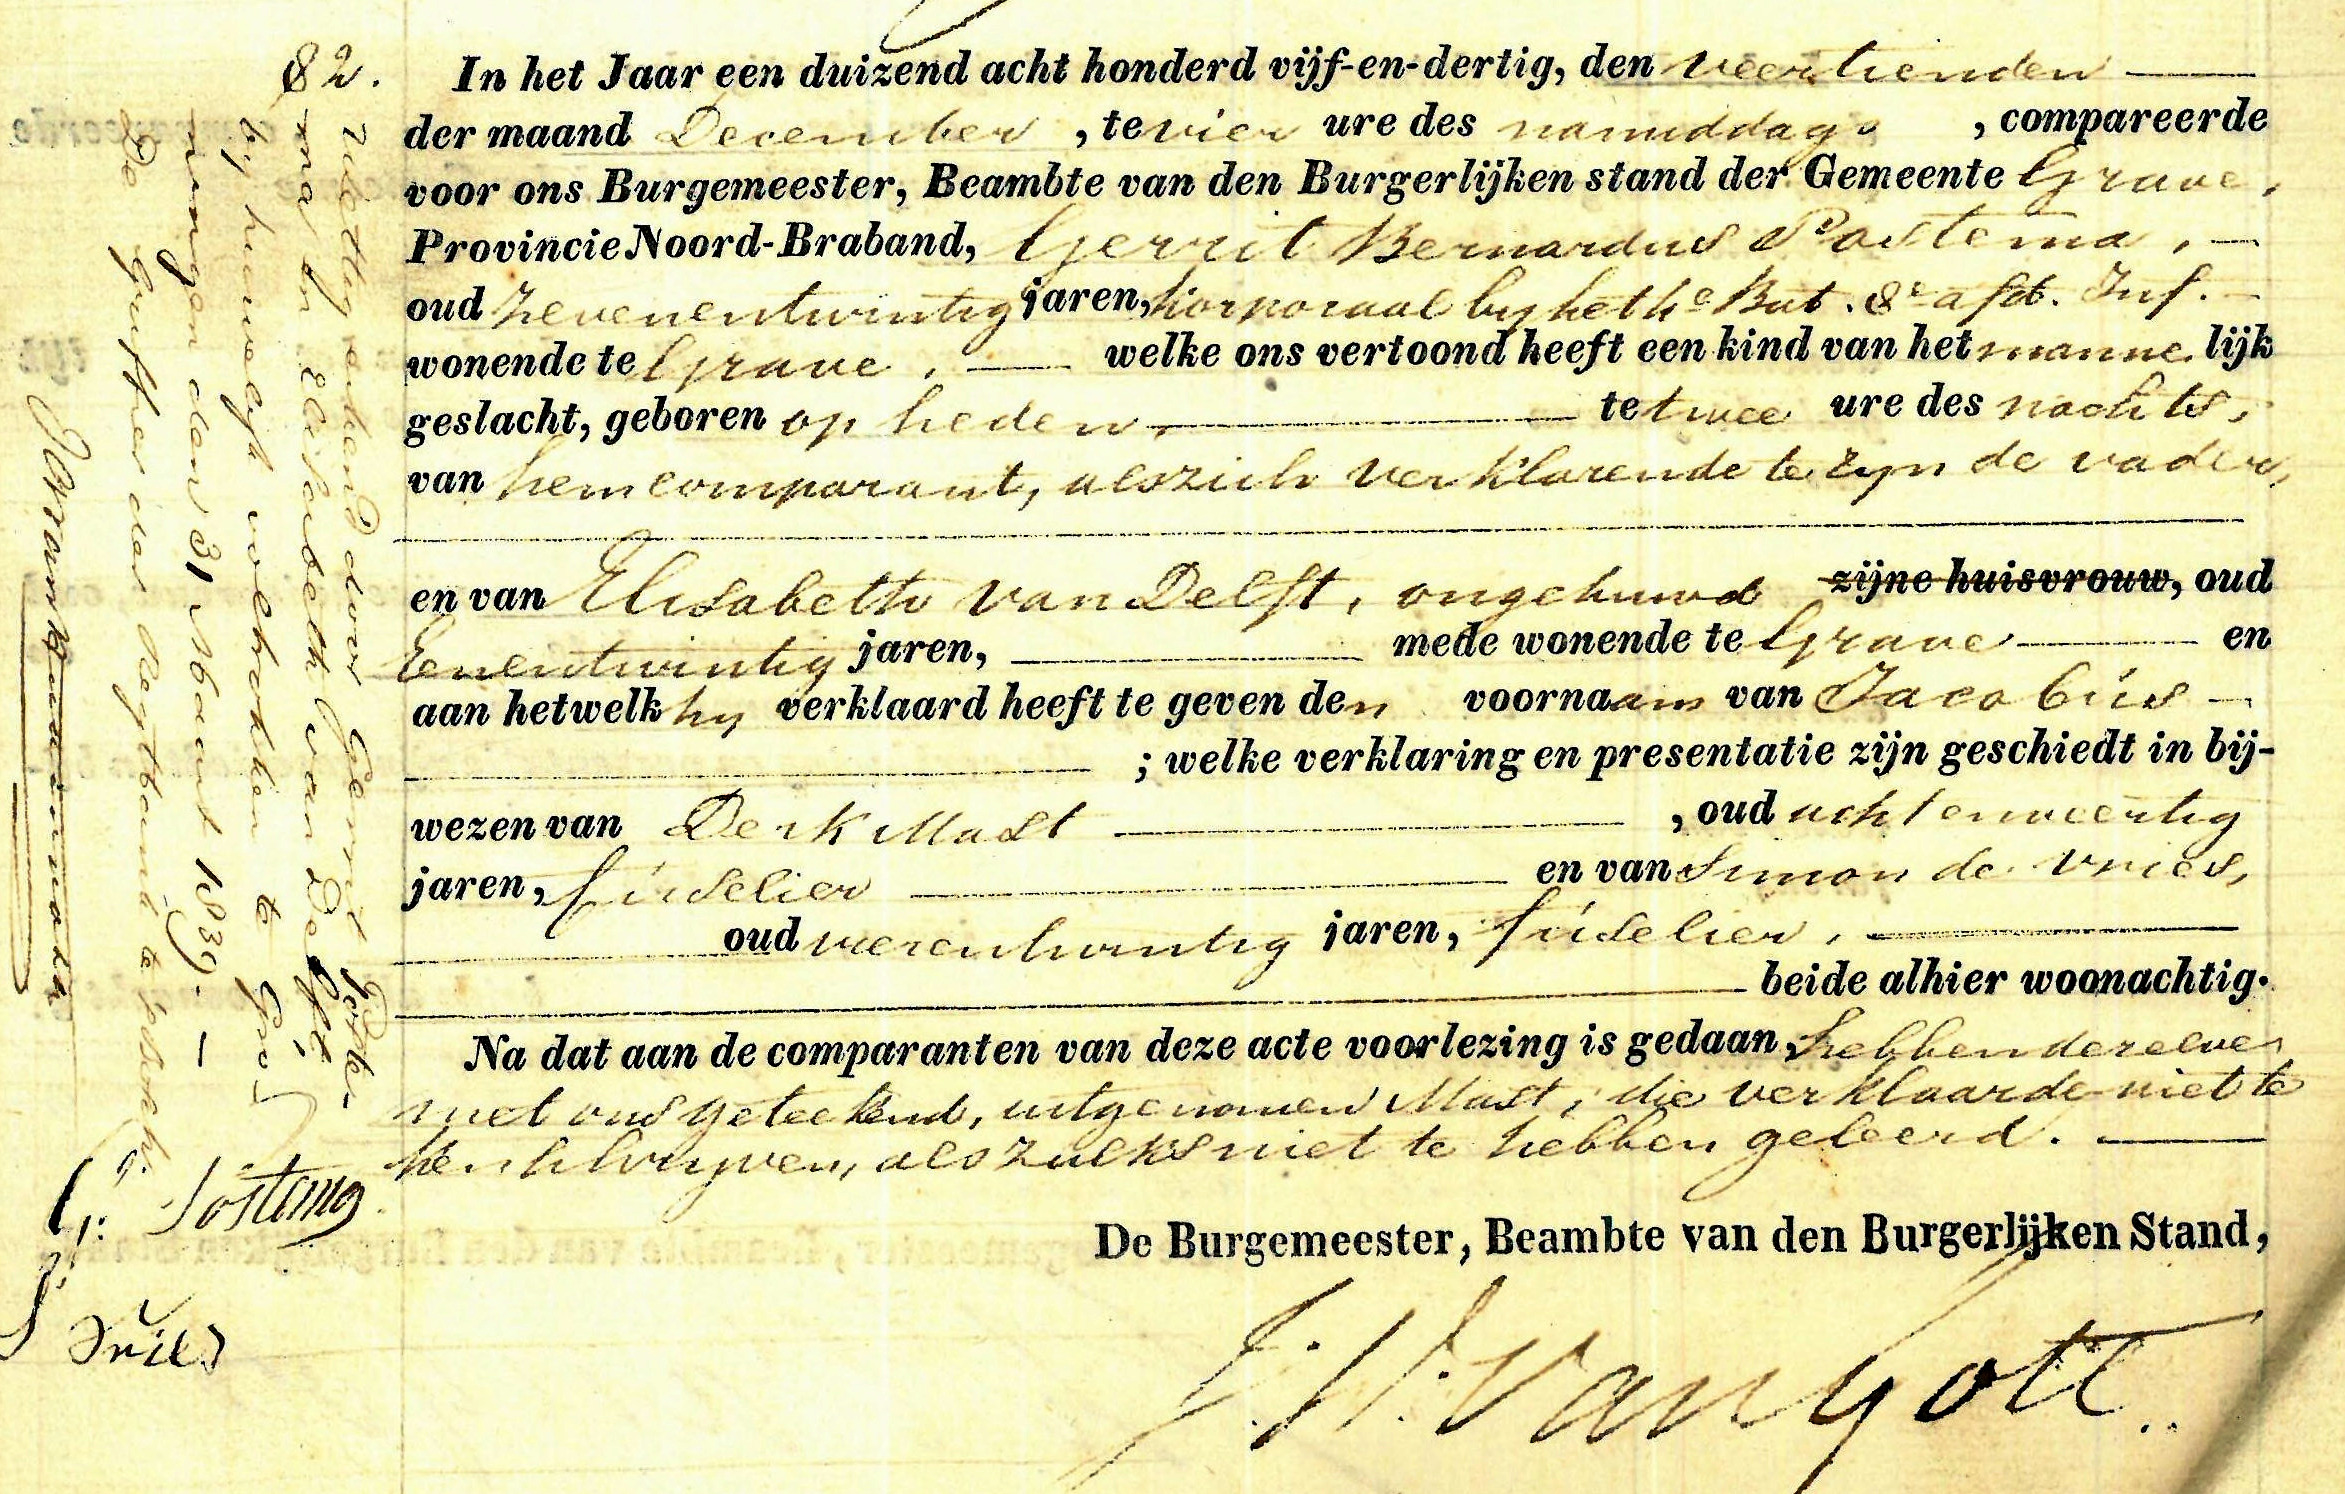 82.
In het Jaar een duizend acht honderd vijf-en-dertig, den veertienden
der maand December, te vier ure des namiddags, compareerde
voor ons Burgemeester, Beambte van den Burgerlijken stand der Gemeente Grave,
Provincie Noord-Braband, Gerrit Bernardus Postema,
oud zevenentwintig jaren, korporaal by het Bat. 8e afd. Inf.
wonende te Grave. welke ons vertoond heeft een kind van het manne lijk
geslacht, geboren op heden, te twee ure des nachts,
van hem comparant, als zich verklarende te zyn de vader,
en van Elisabeth van Delft, ongehuwd zijne huisvrouw, oud
Eenentwintig jaren, mede wonende te Grave en
aan hetwelk hy verklaard heeft te geven den voornaam van Jacobus
; welke verklaring en presentatie zijn geschiedt in bij-
wezen van Derk Mast, oud achtenveertig
jaren, fuselier en van Simon de Vries,
oud vierentwintig jaren, fuselier,
beide alhier woonachtig.
Na dat aan de comparanten van deze acte voorlezing is gedaan, hebben dezelve
met ons geteekend, uitgenomen Mast, die verklaarde niet te
kennen schryven, als zulks niet te hebben geleerd.
De Burgemeester, Beambte van den Burgerlijken Stand,
van Gott
door Gerrit Poste-
ma en Elisabeth van Delft,
by huwelyk voltrokken te Gro-
ningen den 31 Maart 1839.
De Griffier der Regtbank
G: Postema
S Vries